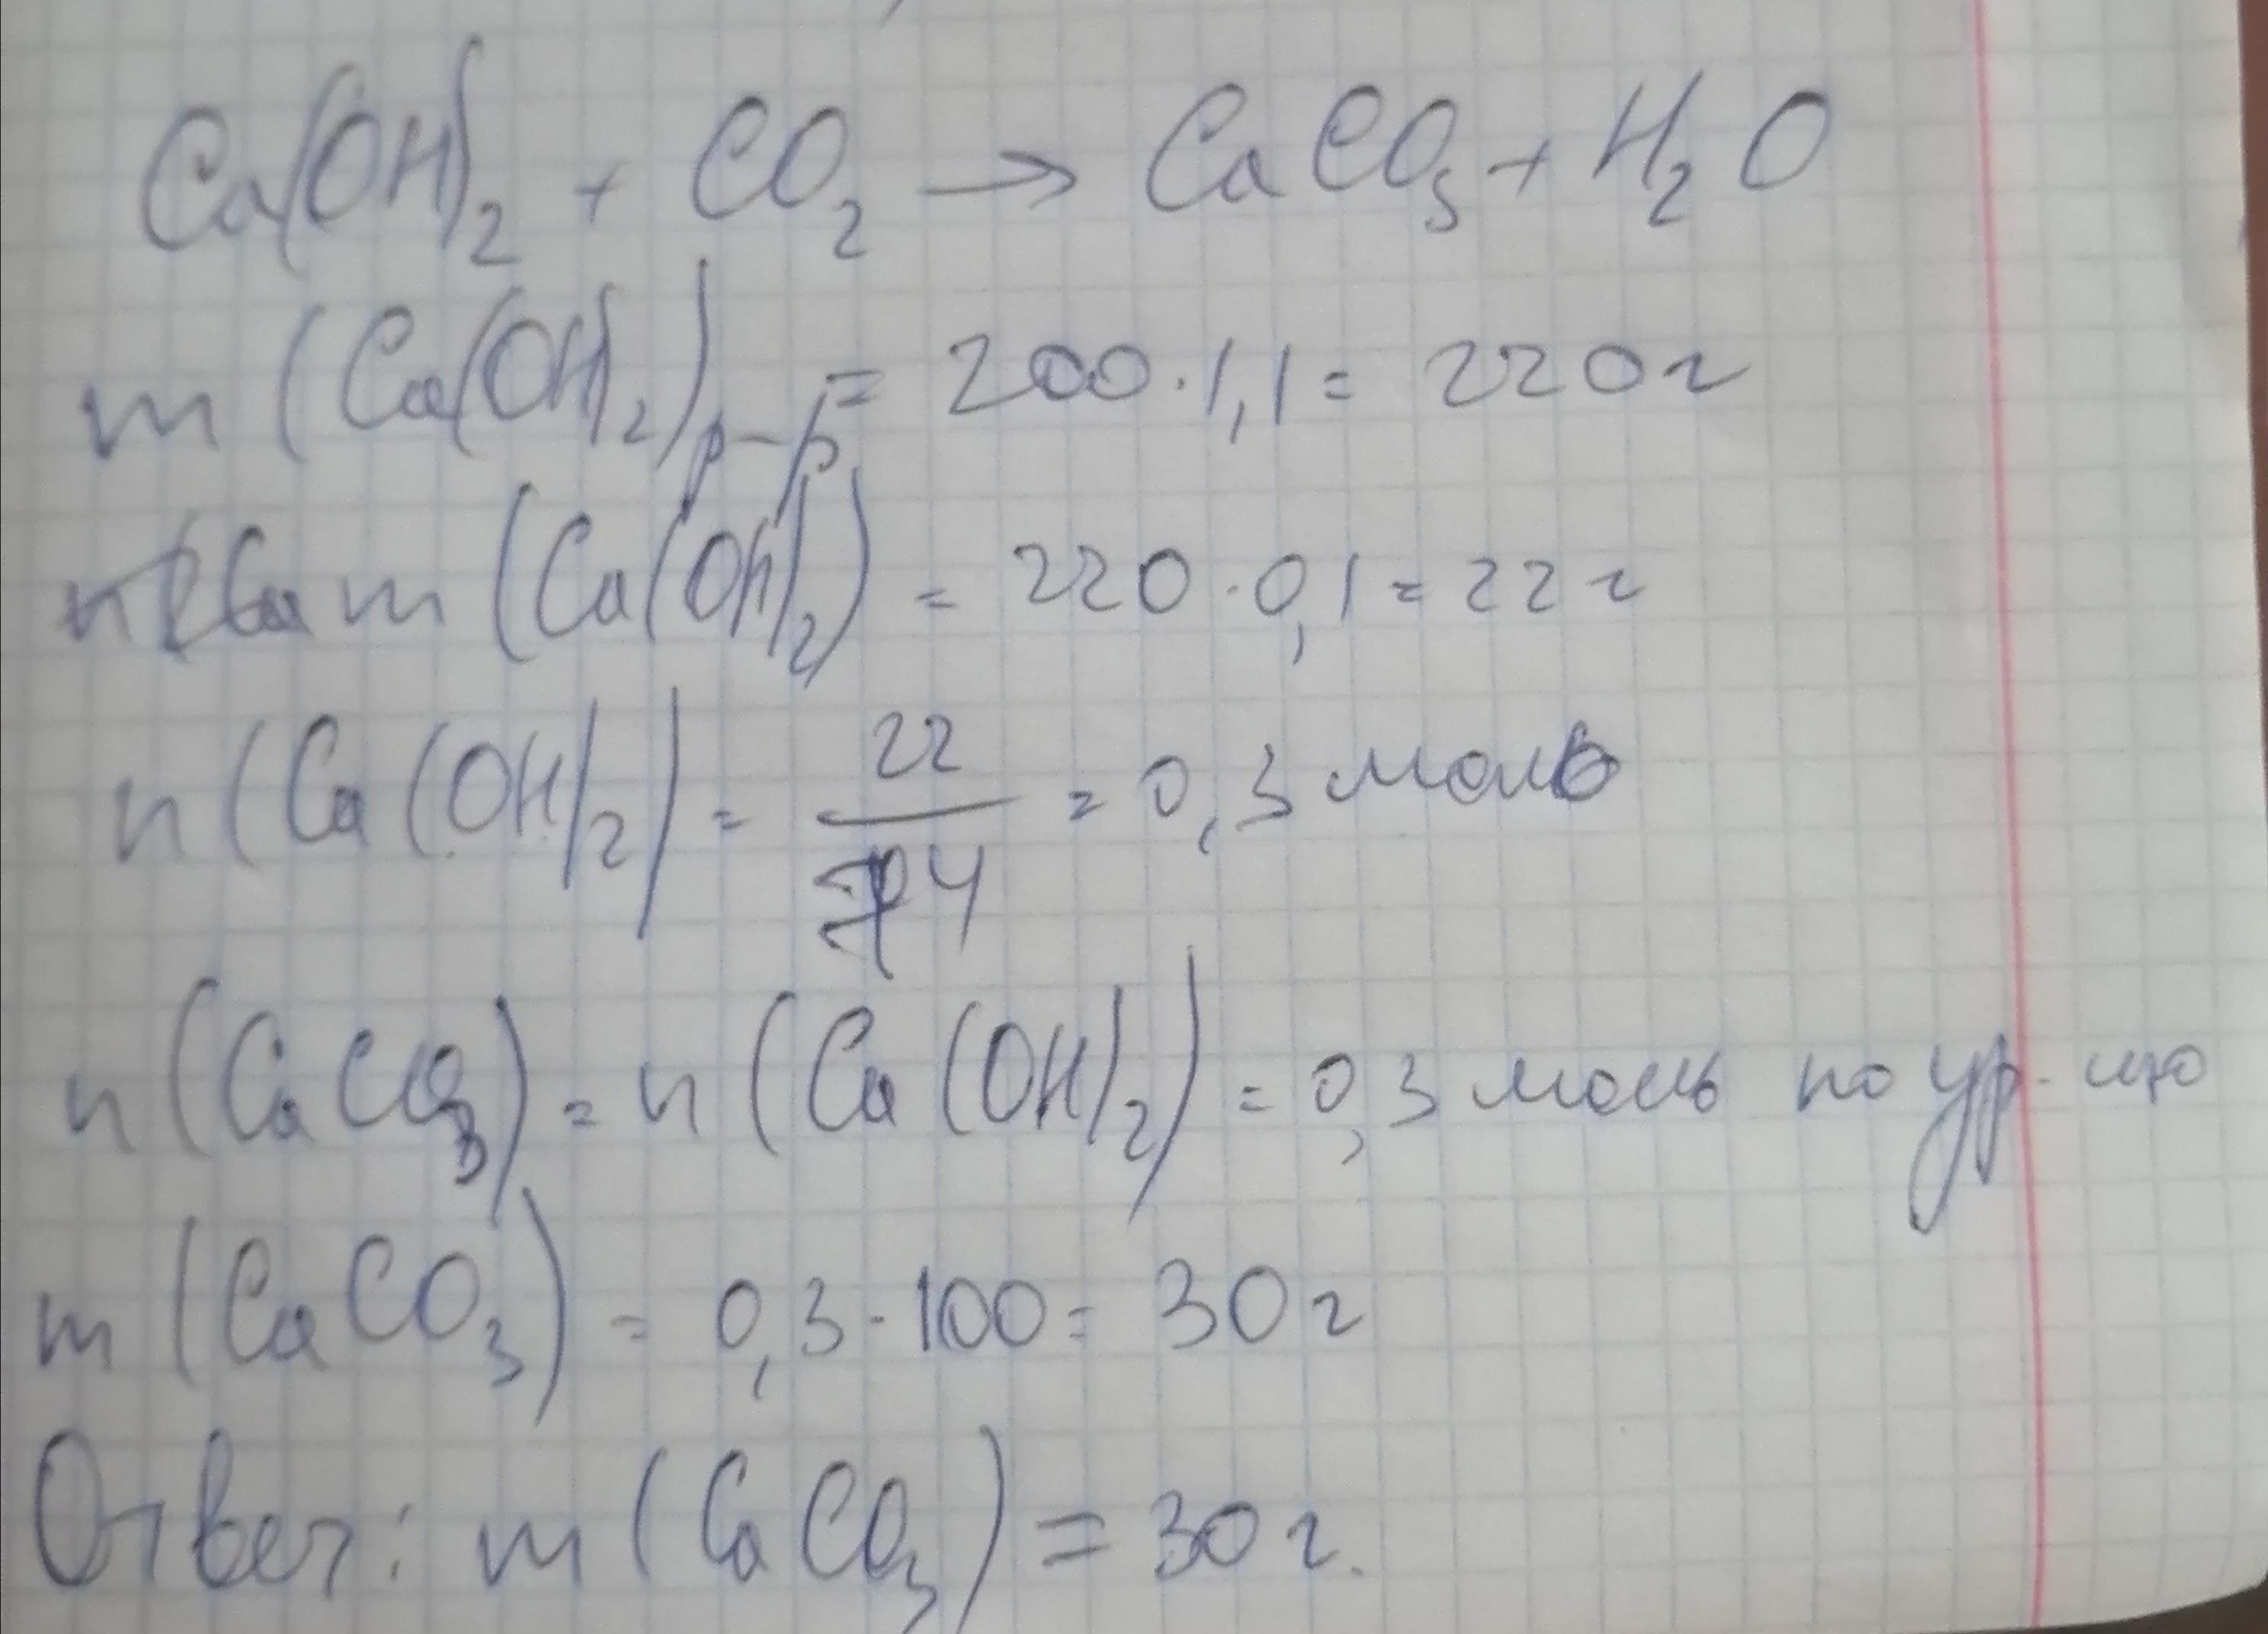 Ca(OH)₂ + CO₂ → CaCO₃ + H₂O
m (Ca(OH)₂)р-р = 200 · 1,1 = 220 г
m (Ca(OH)₂) = 220 · 0,1 = 22 г
n (Ca(OH)₂) = 22/74 = 0,3 моль
n (CaCO₃) = n (Ca(OH)₂) = 0,3 моль по ур-ию
m (CaCO₃) = 0,3 · 100 = 30 г
Ответ: m (CaCO₃) = 30 г.